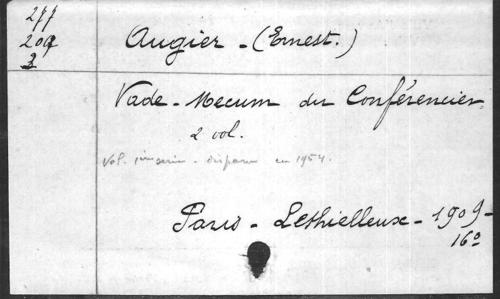 277
209
3
Augier - (Ernest.)
Vade - Mecum du Conférencier.
2 vol.
Vol. - disparu en 1954.
Paris - Lethielleux - 1909 -
16º